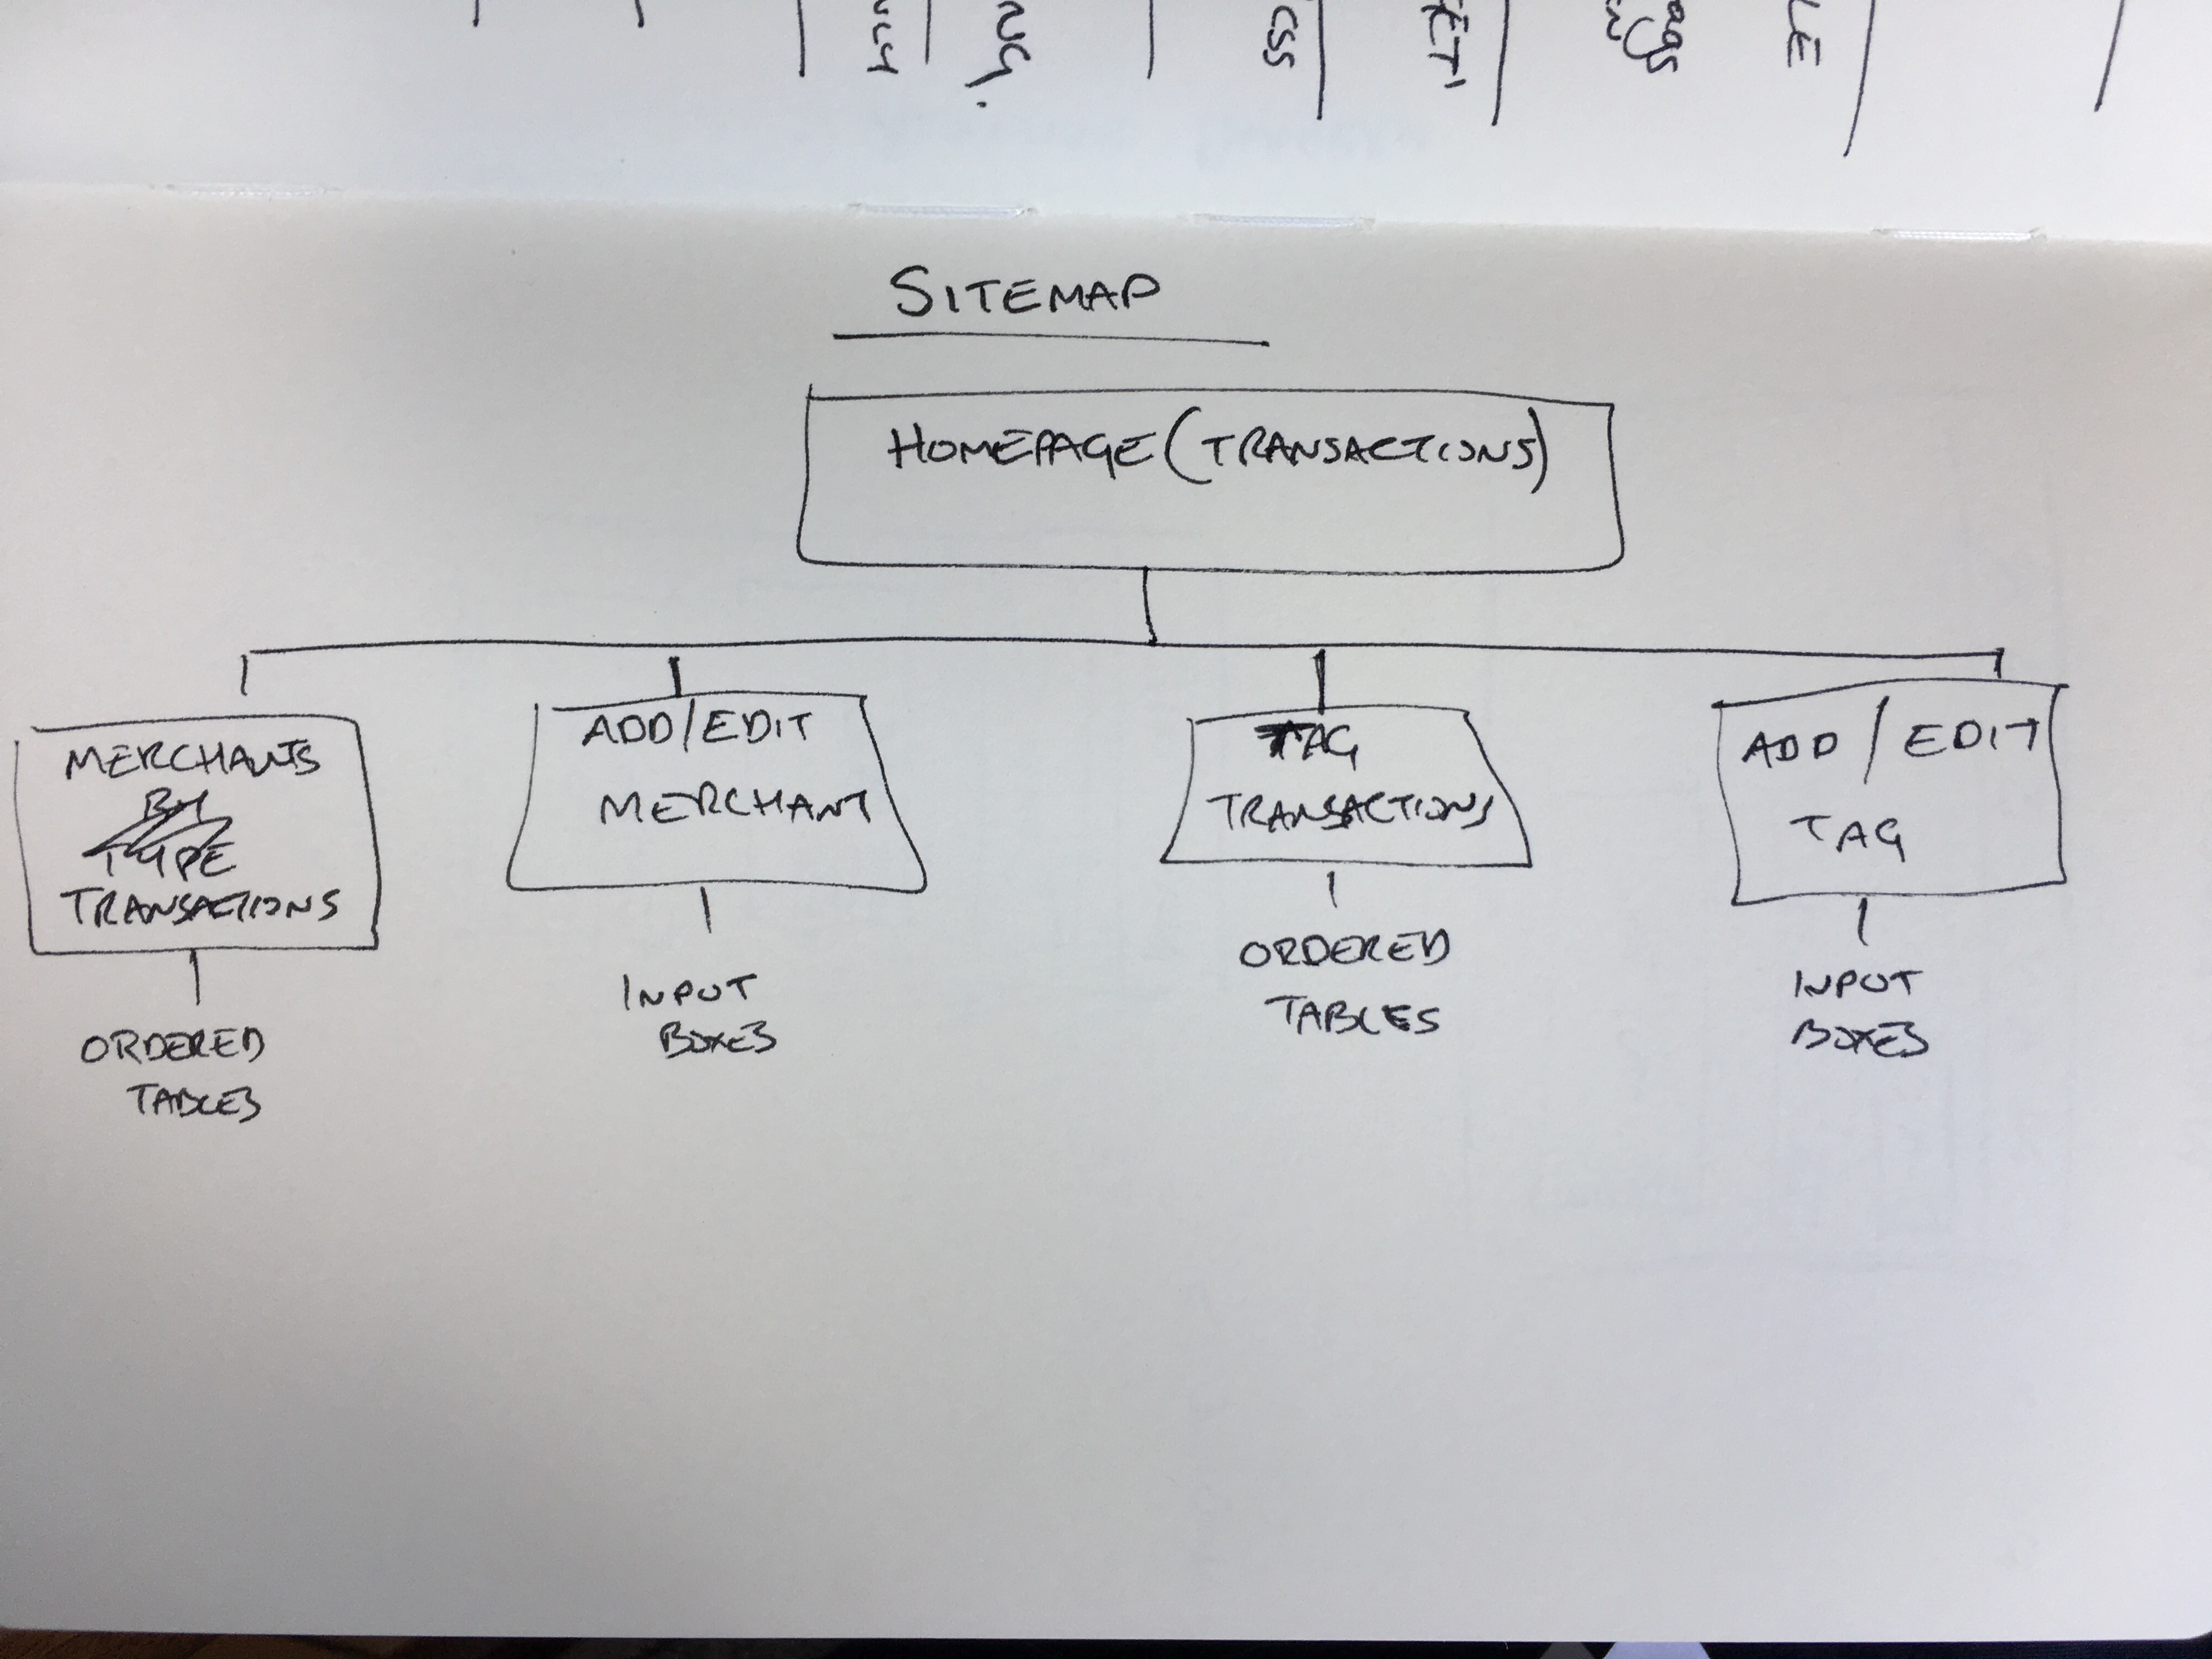 SITEMAP
HOMEPAGE (TRANSACTIONS)
MERCHANTS
BY
TYPE
TRANSACTIONS
ORDERED
TABLES
ADD/EDIT
MERCHANT
INPUT
BOXES
TAG
TRANSACTIONS
ORDERED
TABLES
ADD / EDIT
TAG
INPUT
BOXES
CSS